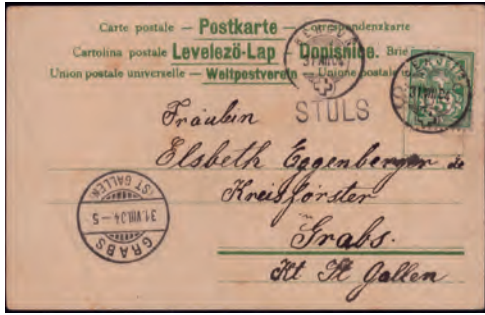 Carte postale – Postkarte – Correspondenzkarte
Cartolina postale Levelező-Lap Dopisnice. Brie
Union postale universelle – Weltpostverein – Unione postale in
31.VIII.04
31.VIII.04
STULS
Fräulein
Elsbeth Eggenberger
Kreisförster
Grabs.
Kt St Gallen
GRABS
(ST. GALLEN)
31.VIII.04 – 5